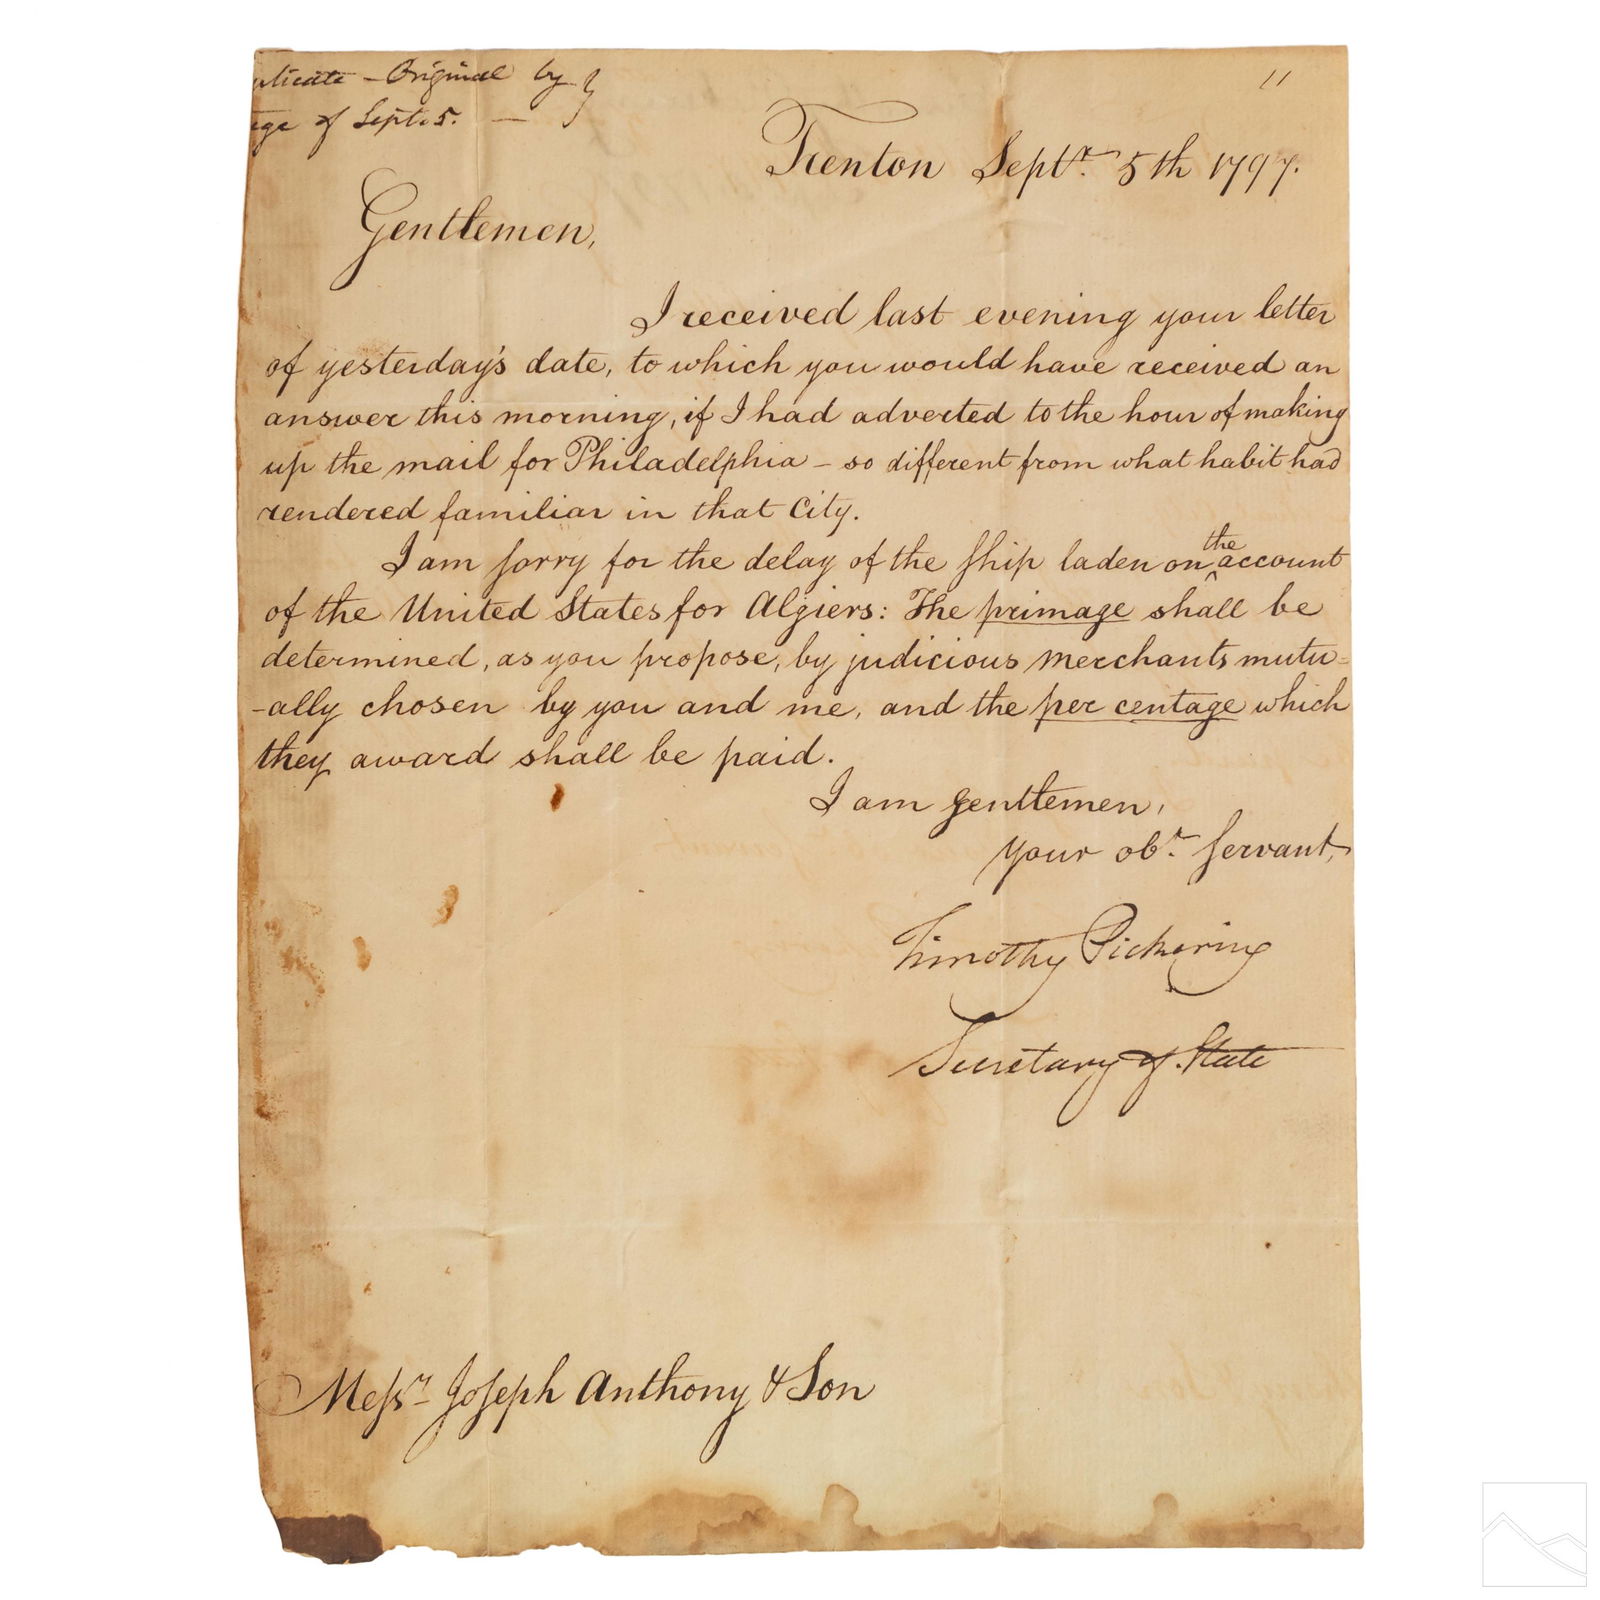 plicate - Original by
age of Sept. 5. —
11
Trenton Septr. 5th 1797.
Gentlemen,
I received last evening your letter
of yesterday's date, to which you would have received an
answer this morning, if I had adverted to the hour of making
up the mail for Philadelphia - so different from what habit had
rendered familiar in that City.
I am sorry for the delay of the Ship laden on the account
of the United States for Algiers: The primage shall be
determined, as you propose, by judicious merchants mutu=
-ally chosen by you and me, and the per centage which
they award shall be paid.
I am gentlemen,
your obt. servant,
Timothy Pickering
Secretary of State
Messrs. Joseph Anthony & Son